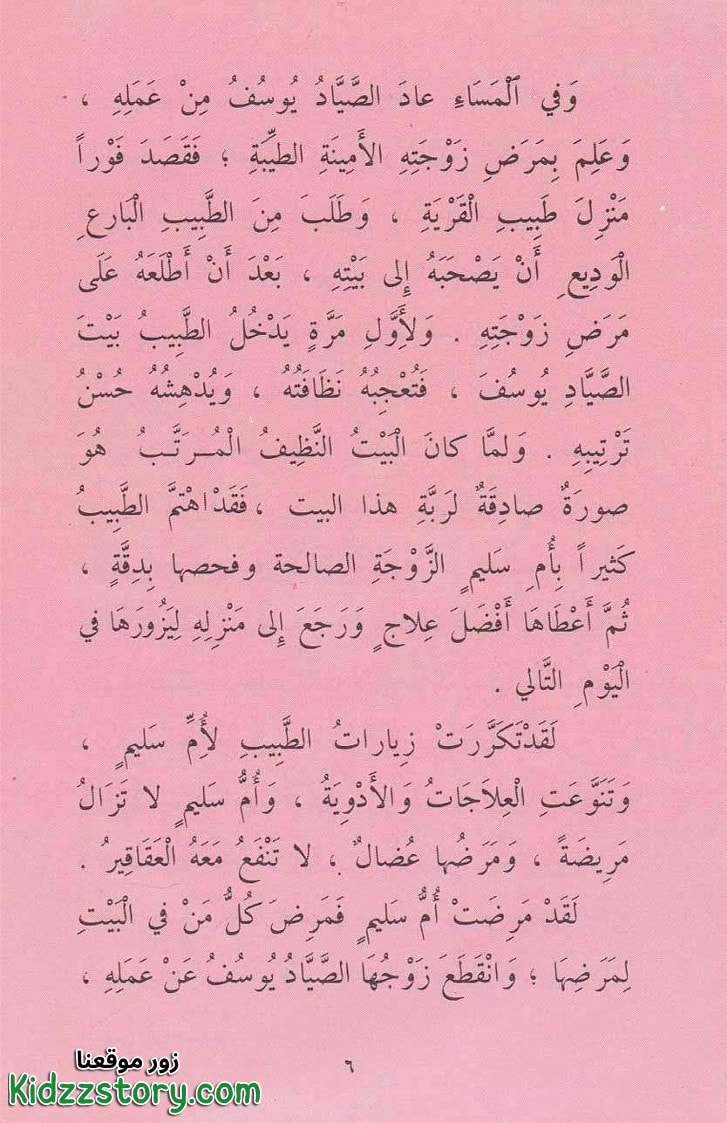 وَفي ٱلْمَسَاءِ عادَ الصَّيَّادُ يُوسُفُ مِنْ عَمَلِهِ ،
وَعَلِمَ بِمَرَضِ زَوْجَتِهِ الأَمِينَةِ الطيِّبَةِ ؛ فَقَصَدَ فَوْراً
مَنْزِلَ طَبِيبِ الْقَرْيَةِ ، وَطَلَبَ مِنَ الطَّبِيبِ الْبَارعِ
الْوَدِيعِ أَنْ يَصْحَبَهُ إِلى بَيْتِهِ ، بَعْدَ أَنْ أَطْلَعَهُ عَلَى
مَرَضِ زَوْجَتِهِ . وَلأَِوَّلِ مَرَّةٍ يَدْخُلُ الطَّبِيبُ بَيْتَ
الصَّيَّادِ يُوسُفَ ، فَتُعْجِبُهُ نَظَافَتُهُ ، وَيُدْهِشُهُ حُسْنُ
تَرْتِيبِهِ . وَلمَّا كانَ الْبَيْتُ النَّظِيفُ الْمُرَتَّبُ هُوَ
صورَةٌ صادِقَةٌ لرَبَّةِ هذا البيت ، فَقَدْ اهْتمَّ الطَّبِيبُ
كَثيراً بِأُمِ سَليمٍ الزَّوْجَةِ الصالحة وفحصها بِدِقَّةٍ ،
ثُمَّ أَعْطَاهَا أَفْضَلَ عِلاجٍ وَرَجَعَ إِلى مَنْزِلِهِ لِيَزُورَهَا في
الْيَوْمِ التَّالي .
لَقَدْ تَكَرَّرَتْ زِياراتُ الطَّبِيبِ لأُمِّ سَليمٍ ،
وَتَنَوَّعَتِ الْعِلاَجَاتُ وَالأَدْوِيَةُ ، وَأُمُّ سَليمٍ لا تَزَالُ
مَرِيضَةً ، وَمَرَضُها عُضالٌ ؛ لا تَنْفَعُ مَعَهُ الْعَقَاقِيرُ .
لَقَدْ مَرِضَتْ أُمُّ سَليمٍ فَمَرِضَ كُلُّ مَنْ في الْبَيْتِ
لِمَرَضِهَا ؛ وَانْقَطَعَ زَوْجُهَا الصَّيَّادُ يُوسُفُ عَنْ عَمَلِهِ ،
٦
زور موقعنا
Kidzzstory.com